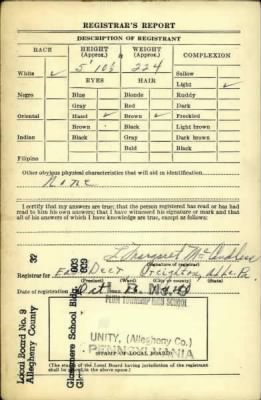 REGISTRAR'S REPORT
DESCRIPTION OF REGISTRANT
RACE HEIGHT (Approx.) WEIGHT (Approx.) COMPLEXION
5' 10½ 224
White ✓ Sallow
EYES HAIR Light ✓
Negro Blue Blonde Ruddy
Gray Red Dark
Oriental Hazel ✓ Brown ✓ Freckled
Brown Black Light brown
Indian Black Gray Dark brown
Bald Black
Filipino
Other obvious physical characteristics that will aid in identification
None
I certify that my answers are true; that the person registered has read or has had
read to him his own answers; that I have witnessed his signature or mark and that
all of his answers of which I have knowledge are true, except as follows:
L. Margaret
(Signature of registrar)
Registrar for
(Precinct) (Ward) (City or county) (State)
Date of registration
PLUM TOWNSHIP HIGH SCHOOL
UNITY, (Allegheny Co.)
PENNSYLVANIA
STAMP OF LOCAL BOARD
(The stamp of the Local Board having jurisdiction of the registrant
shall be placed in the above space.)
Local Board No. 9
Allegheny County
32
003
003